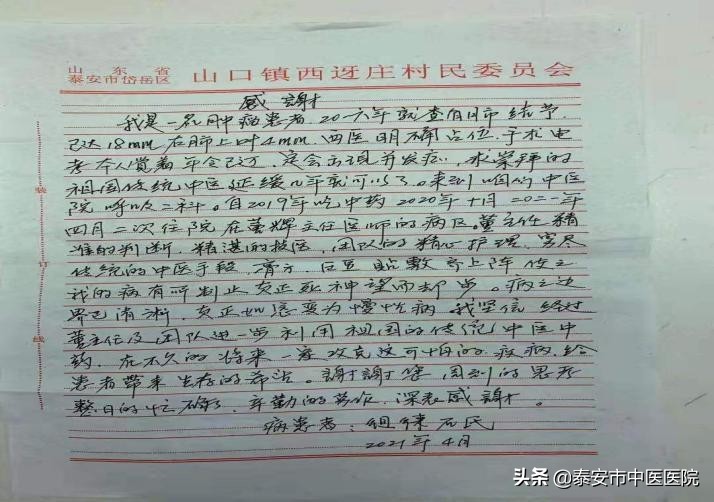 山东省
泰安市岱岳区 山口镇西迓庄村民委员会
感謝
我是一名肺癌患者.20一六年就查自门市结节.
已达18mm,右肺上叶4mm.西医明确占位.手术
考本人觉着年令已过 定会出现并发症.求崇拜的
祖国传统中医延缓几年就可以了。来到咱们中医
院呼吸二科。自2019年吃中药2020年十月二0二一年
四月二次住院在董輝主任医师的病区。董主任精
准的判断.精湛的技医,团队的精心护理.穷尽
传统的中医手段.膏方 贴敷 上阵 使之
我的病有所制止真正死神望而却步。病之边
界已清淅.真正 恶变为慢性病 我坚信 经过
董主任及团队进一步利用祖国的传统中医中
药.在不久的将来一定攻克这可怕的 疾病,给
患者带来生存的希望。謝謝 周到的思考
整日的忙碌.辛勤的劳作.深表感謝。
病患者:
2021年4月
装
订
线
头条@泰安市中医医院